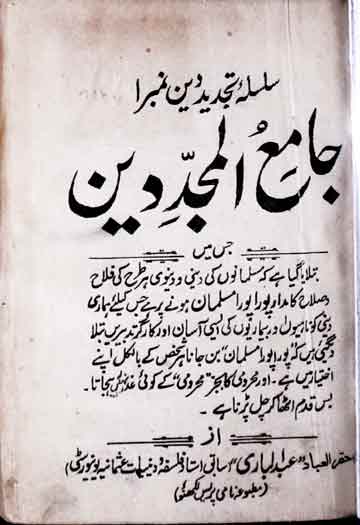 سلسلۂ تجدید دین نمبر ۱
جامع المجدِّدین
جس میں
بتلایا گیا ہے کہ مسلمانوں کی دینی و دنیوی ہر طرح کی فلاح
و صلاح کا مدار پورا پورا مسلمان ہونے پر ہے جس کیلئے ہماری
دینی کوتاہیوں و بیماریوں کی ایسی آسان اور کارگر تدبیریں بتلا
دیگئی ہیں کہ "پورا پورا مسلمان" بن جانا ہر شخص کے بالکل اپنے
اختیار میں ہے۔ اور محرومی کا بجز "محرومی" کے کوئی عذر نہیں رہجاتا۔
بس قدم اٹھا کر چل پڑنا ہے۔
از
احقر العباد "عبدالباری" (سابق استاذ فلسفہ و دینیات عثمانیہ یونیورسٹی)
(مطبوعہ نامی پریس لکھنؤ)